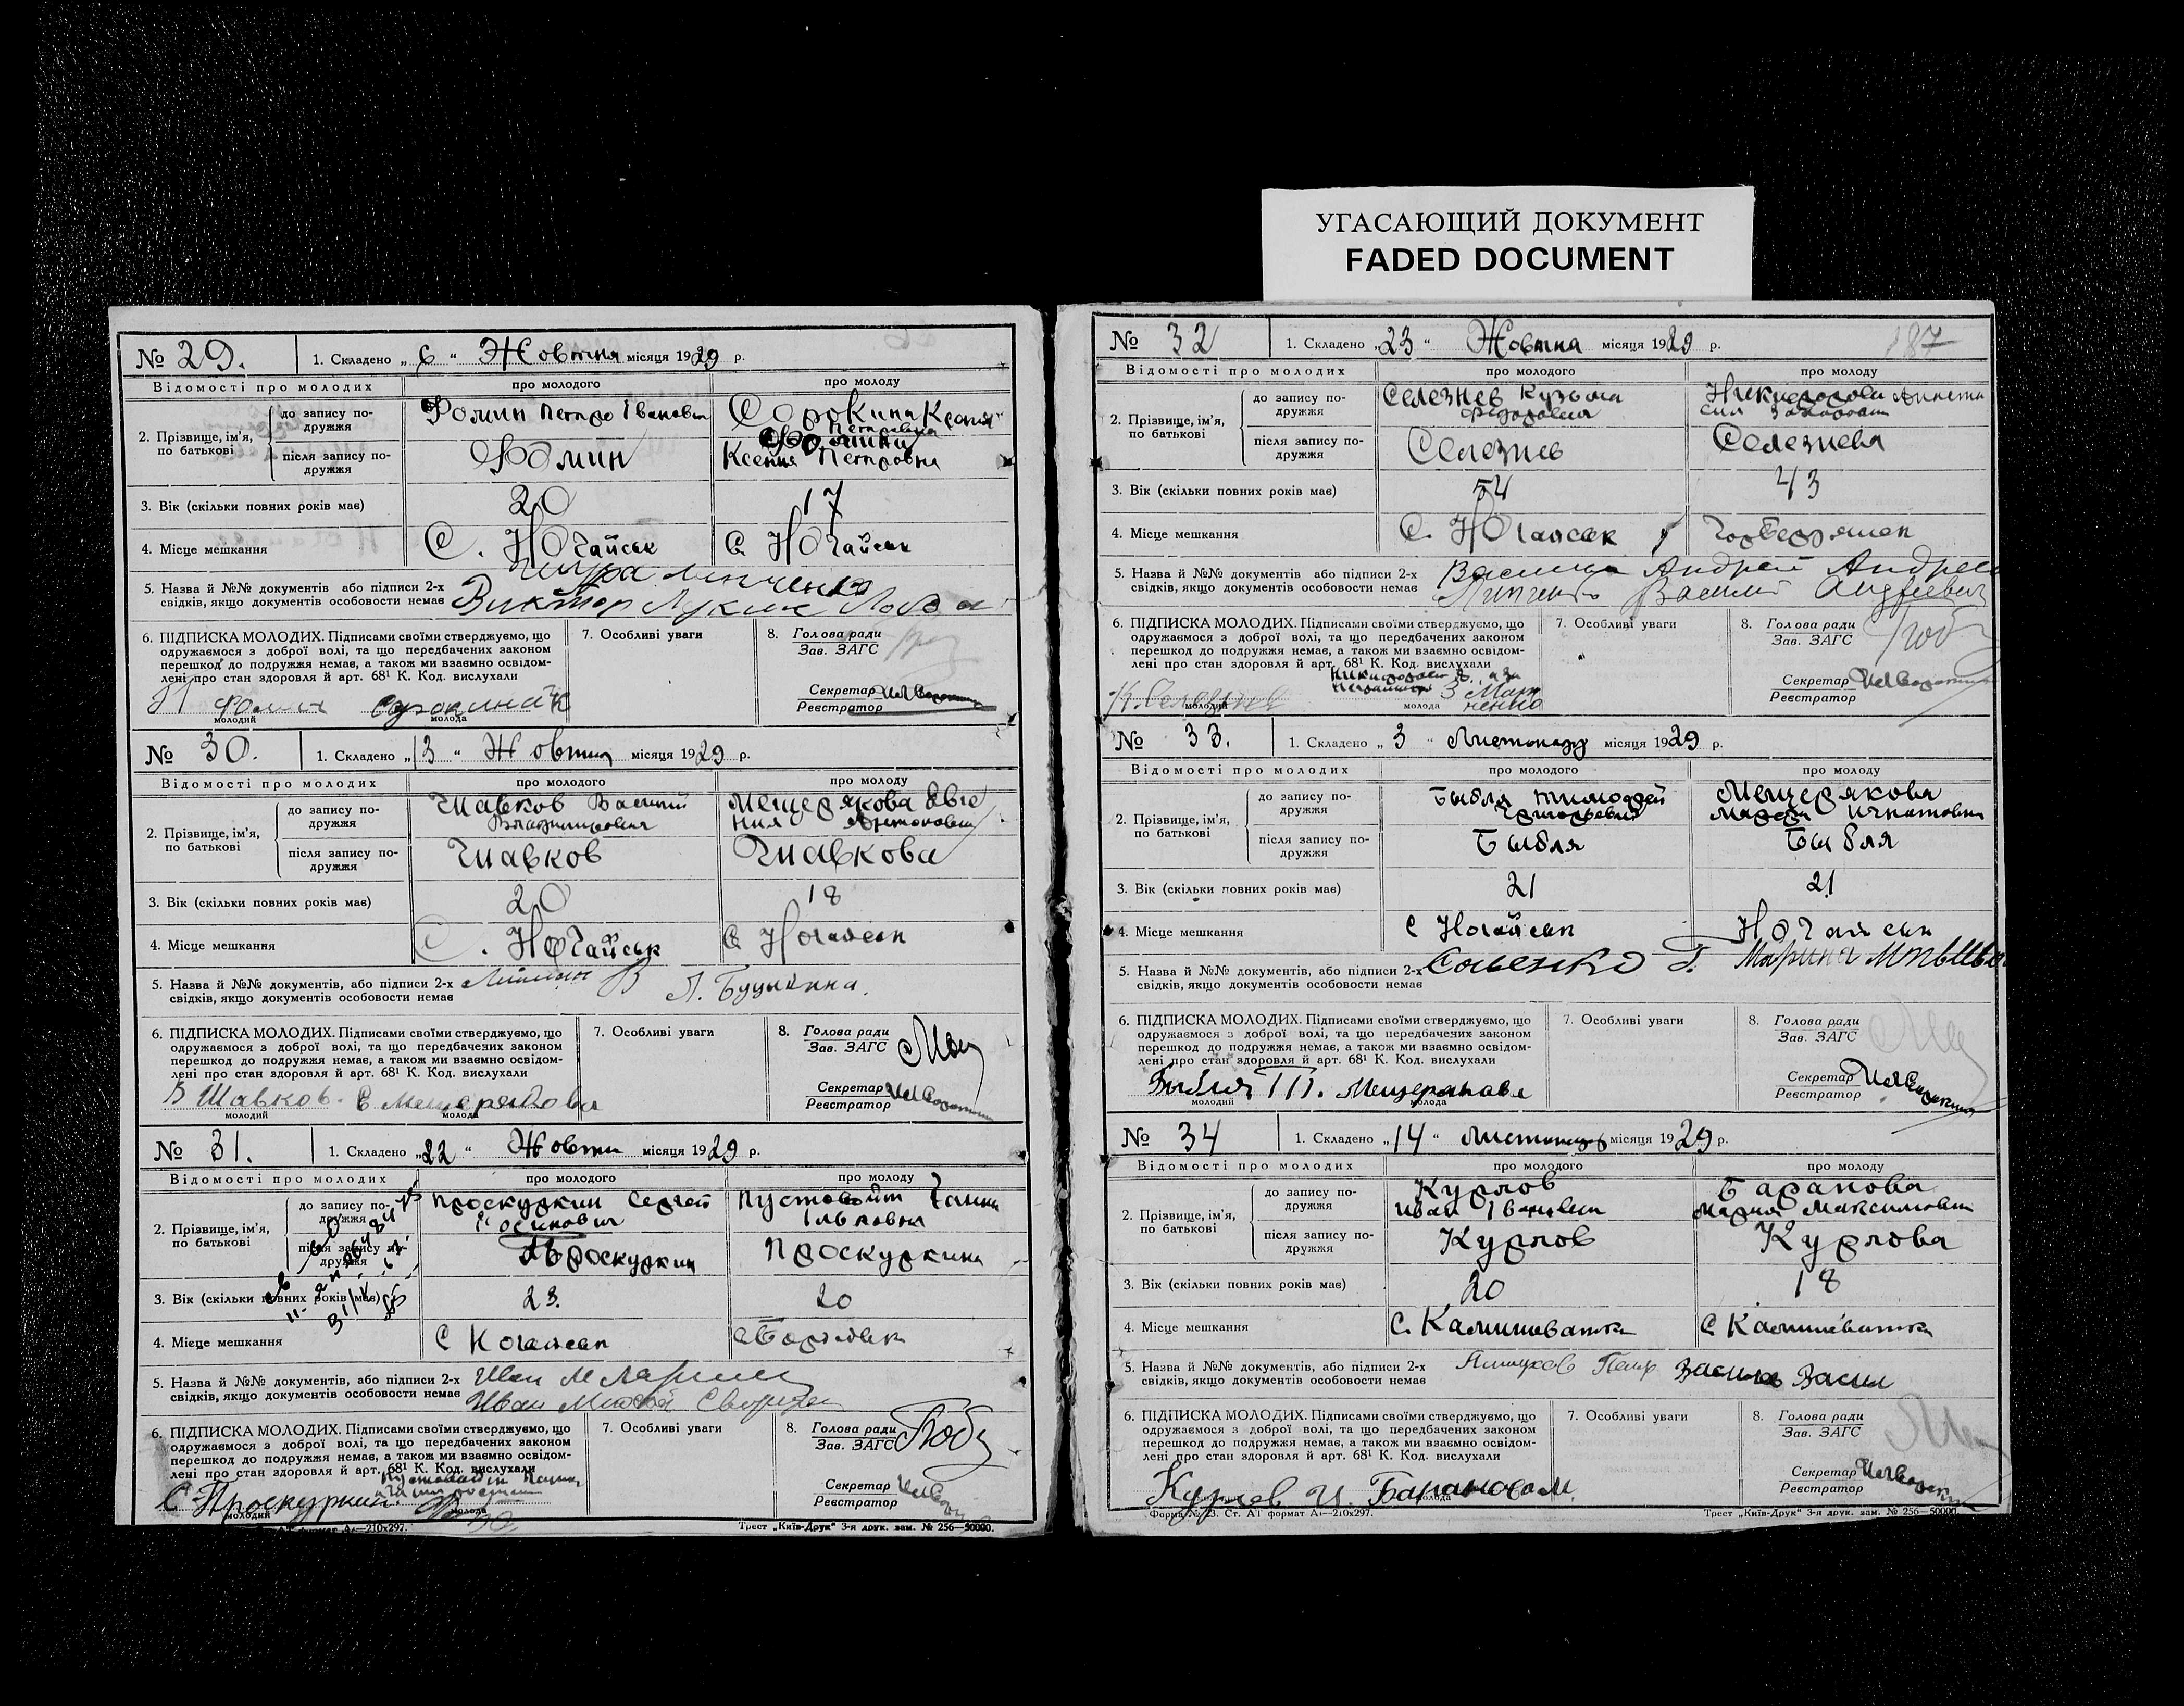 УГАСАЮЩИЙ ДОКУМЕНТ
FADED DOCUMENT
№ 29. 1. Складено „ 6 “ Жовтня місяця 1929 р.
Відомості про молодих про молодого про молоду
2. Прізвище, ім'я, по батькові
до запису по-
дружжя
Фомин Петро Іванович Сорокина Ксения
Петровна
після запису по-
дружжя
Фомин Фомина
Ксения Петровна
3. Вік (скільки повних років має) 20 17
4. Місце мешкання С. Ногайськ С. Ногайськ
5. Назва й №№ документів або підписи 2-х
свідків, якщо документів особовости немає Виктор
6. ПІДПИСКА МОЛОДИХ. Підписами своїми стверджуємо, що
одружаємося з доброї волі, та що передбачених законом
перешкод до подружжя немає, а також ми взаємно освідом-
лені про стан здоровля й арт. 68¹ К. Код. вислухали
Фомин Сорокина К
молодий молода
7. Особливі уваги
8. Голова ради
Зав. ЗАГС
Секретар
Реєстратор
№ 30. 1. Складено „ 13 “ Жовтня місяця 1929 р.
Відомості про молодих про молодого про молоду
2. Прізвище, ім'я,
по батькові
до запису по-
дружжя
Шавков Василий
Владимирович
Мещерякова Евге
ния Антоновна
після запису по-
дружжя
Шавков Шавкова
3. Вік (скільки повних років має) 20 18
4. Місце мешкання С. Ногайськ С. Ногайськ
5. Назва й №№ документів, або підписи 2-х
свідків, якщо документів особовости немає
6. ПІДПИСКА МОЛОДИХ. Підписами своїми стверджуємо, що
одружаємося з доброї волі, та що передбачених законом
перешкод до подружжя немає, а також ми взаємно освідом-
лені про стан здоровля й арт. 68¹ К. Код. вислухали
В Шавков. Е Мещерякова
молодий молода
7. Особливі уваги
8. Голова ради
Зав. ЗАГС
Секретар
Реєстратор
№ 31. 1. Складено „ 22 “ Жовтн місяця 1929 р.
Відомості про молодих про молодого про молоду
2. Прізвище, ім'я,
по батькові
до запису по-
дружжя
Проскуркин Сергей Пустовойт
після запису по-
дружжя
Проскуркин Проскуркина
3. Вік (скільки повних років має) 23. 20
4. Місце мешкання С Ногайськ
5. Назва й №№ документів, або підписи 2-х
свідків, якщо документів особовости немає Иван
Иван
6. ПІДПИСКА МОЛОДИХ. Підписами своїми стверджуємо, що
одружаємося з доброї волі, та що передбачених законом
перешкод до подружжя немає, а також ми взаємно освідом-
лені про стан здоровля й арт. 68¹ К. Код. вислухали
С Проскуркин.
молодий молода
7. Особливі уваги
8. Голова ради
Зав. ЗАГС
Секретар
Реєстратор
210x297. Трест „Київ-Друк“ 3-я друк. зам. № 256—50000.
№ 32 1. Складено „ 23 “ Жовтня місяця 1929 р. 187
Відомості про молодих про молодого про молоду
2. Прізвище, ім'я,
по батькові
до запису по-
дружжя
Селезнев Кузьма
Федорович
після запису по-
дружжя
Селезнев Селезнева
3. Вік (скільки повних років має) 54 43
4. Місце мешкання С. Ногайськ
5. Назва й №№ документів або підписи 2-х
свідків, якщо документів особовости немає Андрей
Василий Андреевич
6. ПІДПИСКА МОЛОДИХ. Підписами своїми стверджуємо, що
одружаємося з доброї волі, та що передбачених законом
перешкод до подружжя немає, а також ми взаємно освідом-
лені про стан здоровля й арт. 68¹ К. Код. вислухали
К. Селезнев
молодий молода
7. Особливі уваги
8. Голова ради
Зав. ЗАГС
Секретар
Реєстратор
№ 33. 1. Складено „ 3 “ Листопаду місяця 1929 р.
Відомості про молодих про молодого про молоду
2. Прізвище, ім'я,
по батькові
до запису по-
дружжя
Быбля Тимофей
Григорьевич
Мещерякова
Игнатовна
після запису по-
дружжя
Быбля Быбля
3. Вік (скільки повних років має) 21 21
4. Місце мешкання С Ногайськ Ногайськ
5. Назва й №№ документів, або підписи 2-х
свідків, якщо документів особовости немає Г. Марина
6. ПІДПИСКА МОЛОДИХ. Підписами своїми стверджуємо, що
одружаємося з доброї волі, та що передбачених законом
перешкод до подружжя немає, а також ми взаємно освідом-
лені про стан здоровля й арт. 68¹ К. Код. вислухали
Быбля Т. Мещерякова
молодий молода
7. Особливі уваги
8. Голова ради
Зав. ЗАГС
Секретар
Реєстратор
№ 34 1. Складено „ 14 “ Листопаду місяця 1929 р.
Відомості про молодих про молодого про молоду
2. Прізвище, ім'я,
по батькові
до запису по-
дружжя
Курлов
Иван Іванович
Баранова
Мария Максимовна
після запису по-
дружжя
Курлов Курлова
3. Вік (скільки повних років має) 20 18
4. Місце мешкання С. Калишоватка С Калишоватка
5. Назва й №№ документів, або підписи 2-х
свідків, якщо документів особовости немає
6. ПІДПИСКА МОЛОДИХ. Підписами своїми стверджуємо, що
одружаємося з доброї волі, та що передбачених законом
перешкод до подружжя немає, а також ми взаємно освідом-
лені про стан здоровля й арт. 68¹ К. Код. вислухали
Курлов И. Баранова М.
молодий молода
7. Особливі уваги
8. Голова ради
Зав. ЗАГС
Секретар
Реєстратор
Форма № 23. Ст. А1 формат А4—210x297. Трест „Київ-Друк“ 3-я друк. зам. № 256—50000.